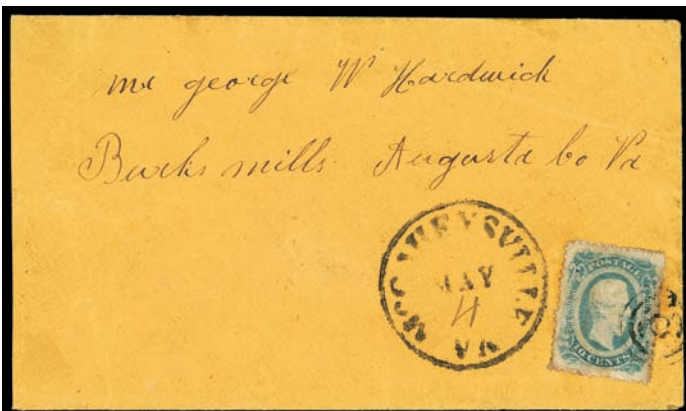 mr george W Hardwick
Burks mills Augusta Co Va
McGAHEYSVILLE VA
MAY
4
POSTAGE
10 CENTS